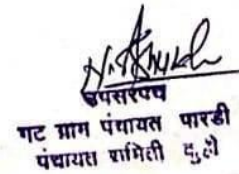 उपसरपंच
गट ग्राम पंचायत पारडी
पंचायत समिती